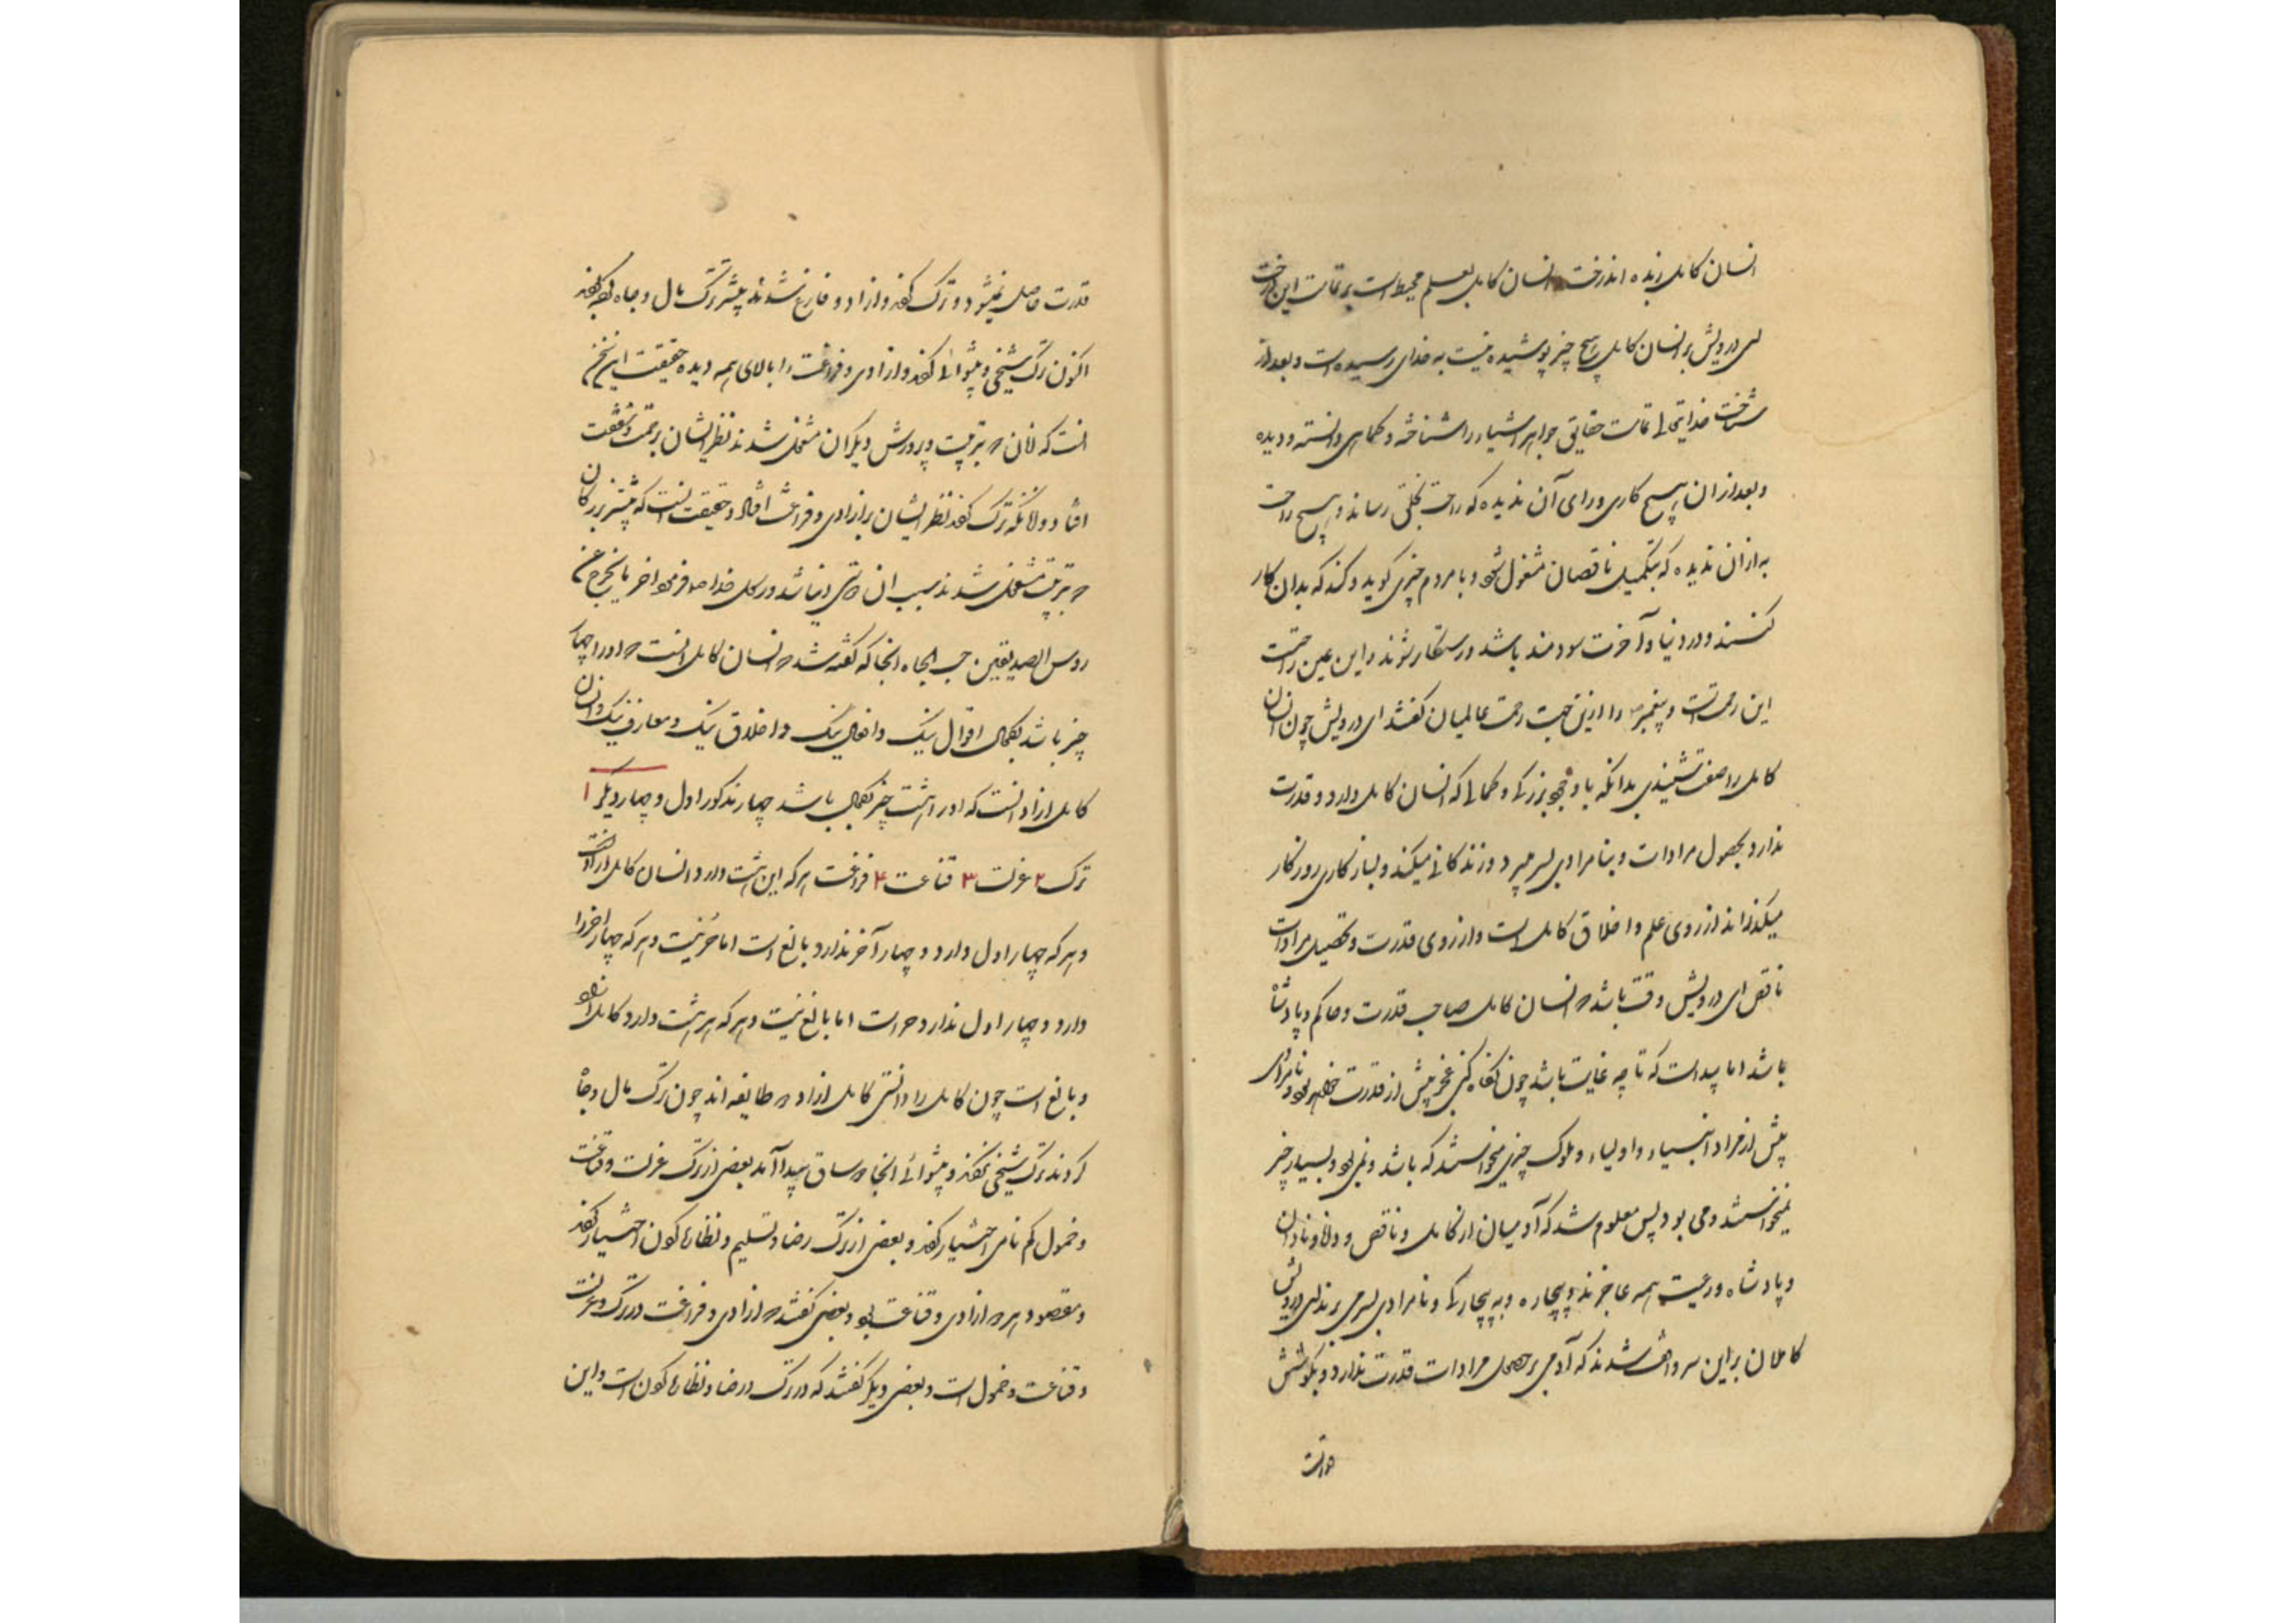 انسان کامل زبده اند درخت انسان کامل بعلم محیط است بر تمامت این درخت
ای درویش بر انسان کامل هیچ چیز پوشیده نیست به خدای رسیده است و بعد از
شناخت خدایتعالی تمامت حقایق جواهر اشیاء را شناخته و کماهی دانسته و دیده
و بعد از ان هیچ کاری ورای آن ندیده که راحت بخلق رساند و هیچ راحت
به از ان ندیده که بتکمیل ناقصان مشغول شود و با مردم چیزی گوید و کند که بدان کار
کنند و در دنیا و آخرت سودمند باشد و رستکار شوند و این عین راحت
این رحمت است و پیغمبر را ازین جهت رحمت عالمیان گفتند ای درویش چون انسان
کامل را صفت شنیدی بدانکه با وجود بزرکی و کمالی که انسان کامل دارد و قدرت
ندارد بحصول مرادات و بنامرادی بسر میبرد و زندکانی میکند و بسازکاری روزکار
میکذراند از روی علم و اخلاق کامل است و از روی قدرت و تحصیل مرادات
ناقص ای درویش وقت باشد که انسان کامل صاحب قدرت و حاکم و پادشاه
باشد اما پیداست که تا چه غایت باشد چون نگاه کنی عجز بیش از قدرت خواهد بود و نامرادی
بیش از مراد انبیاء و اولیاء و ملوک چیزی میخواستند که باشد و نمی بود و بسیار چیز
نمیخواستند و می بود پس معلوم شد که آدمیان از کامل و ناقص و دانا و نادان
و پادشاه و رعیت همه عاجزند و بیچاره و به بیچارکی و نامرادی بسر می برند ای درویش
کاملان بر این سر واقف شدند که آدمی بر حصول مرادات قدرت ندارد و بکوشش
قدرت حاصل نمیشود و ترک کردند و آزاد و فارغ شدند بیشتر ترک مال و جاه کردند
اکنون ترک شیخی و پیشوائی کردند و ازادی و فراغت را بالای همه دیده حقیقت این سخن
انست که انان که بتربیت و پرورش دیکران مشغول شدند نظر ایشان بر رحمت و شفقت
افتاد و انانکه ترک کردند نظر ایشان بر ازادی و فراغت افتاد و حقیقت انست که بیشتر بزرکان
که بتربیت مشغول شدند بسبب ان
روس الصدیقین حب الجاه انجا که کفته شد که انسان کامل انست که او را چهار
چیز باشد بکمال اقوال نیک و افعال نیک و اخلاق نیک و معارف نیک و انسان
کامل ازاد انست که او را هشت چیز بکمال باشد چهار مذکور اول و چهار دیکر ۱
ترک ۲ عزلت ۳ قناعت ۴ فراغت هر که این هشت دارد انسان کامل ازاد است
و هر که چهار اول دارد و چهار آخر ندارد بالغ است اما حر نیست و هر که چهار آخر را
دارد و چهار اول ندارد حر است اما بالغ نیست و هر که هر هشت دارد کامل آزاد
و بالغ است چون کامل را دانستی کامل ازاد دو طایفه اند چون ترک مال و جاه
کردند ترک شیخی کردند و پیشوائی انجا دو ساق پیدا آمد بعضی از ترک عزلت و قناعت
و خمول کم نامی اختیار کردند و بعضی از ترک رضا و تسلیم و نظاره کون اختیار کردند
و مقصود هر دو ازادی و قناعت بود و بعضی گفتند که ازادی و فراغت در ترک و عزلت
و قناعت و خمول است و بعضی دیکر گفتند که در ترک و رضا و نظاره کون است و این